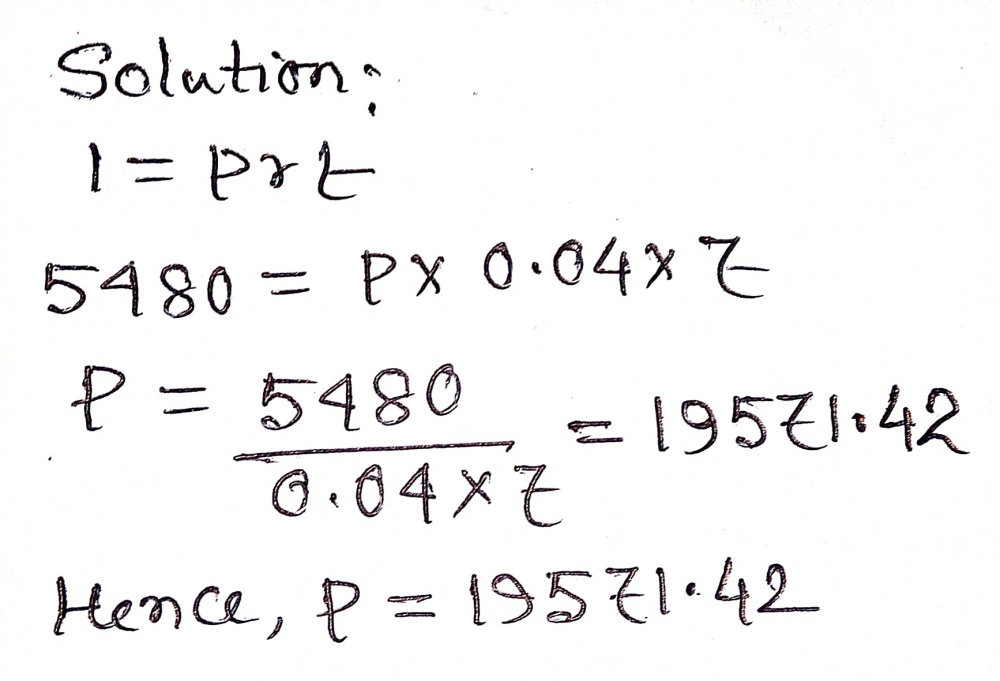 Solution:
I = prt
5480 = P× 0.04 × 7
P = 5480 / 0.04 × 7 = 19571.42
Hence, P = 19571.42